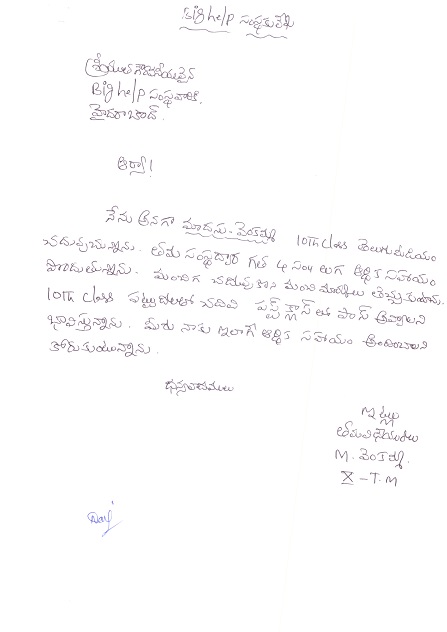 Big help సంస్థకు లేఖ
శ్రీయుత గౌరవనీయులైన
Big help సంస్థవారికి,
హైదరాబాద్.
ఆర్యా!
నేను అనగా మాద్రసు. వెంకమ్మ 10Th Class తెలుగుమీడియం
చదువుచున్నాను. తమ సంస్థద్వార గత 4 సం॥ లుగ ఆర్థిక సహాయం
పొందుతున్నాను. మంచిగ చదువుకొని మంచి మార్కులు తెచ్చుకుంటాను.
10Th Class పట్టుదలతో చదివి ఫస్ట్ క్లాస్ లో పాస్ అవ్వాలని
భావిస్తున్నాను. మీరు నాకు ఇలాగే ఆర్థిక సహాయం అందించాలని
కోరుకుంటున్నాను.
ధన్యవాదములు
ఇట్లు
తమ విధేయురాలు
M. వెంకమ్మ.
X - T.M